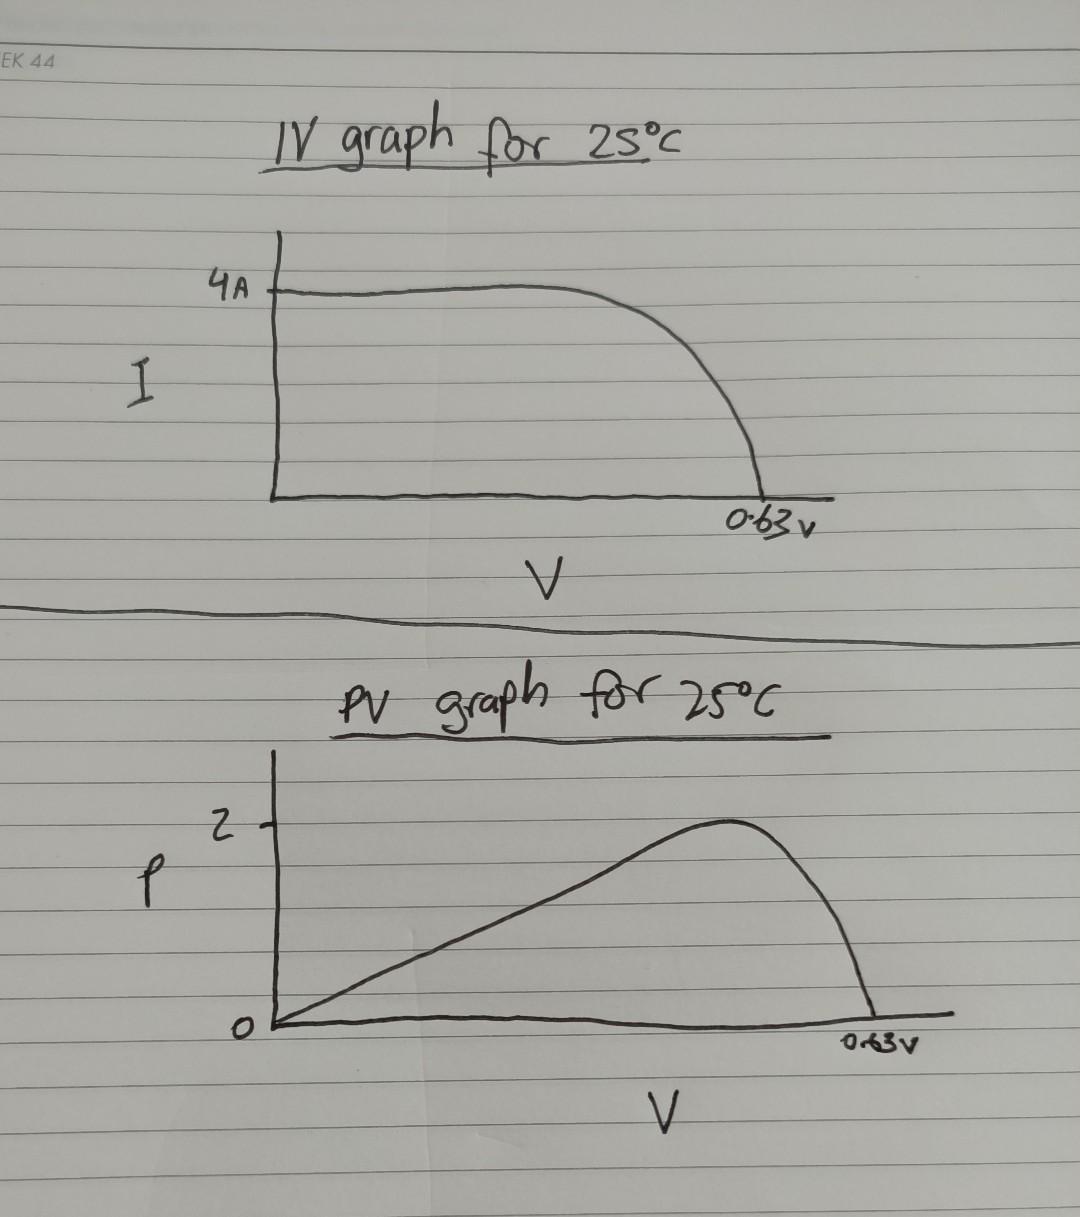 EK 44
IV graph for 25°C
4A
I
0.63 v
V
PV graph for 25°C
2
P
0
0.63 v
V